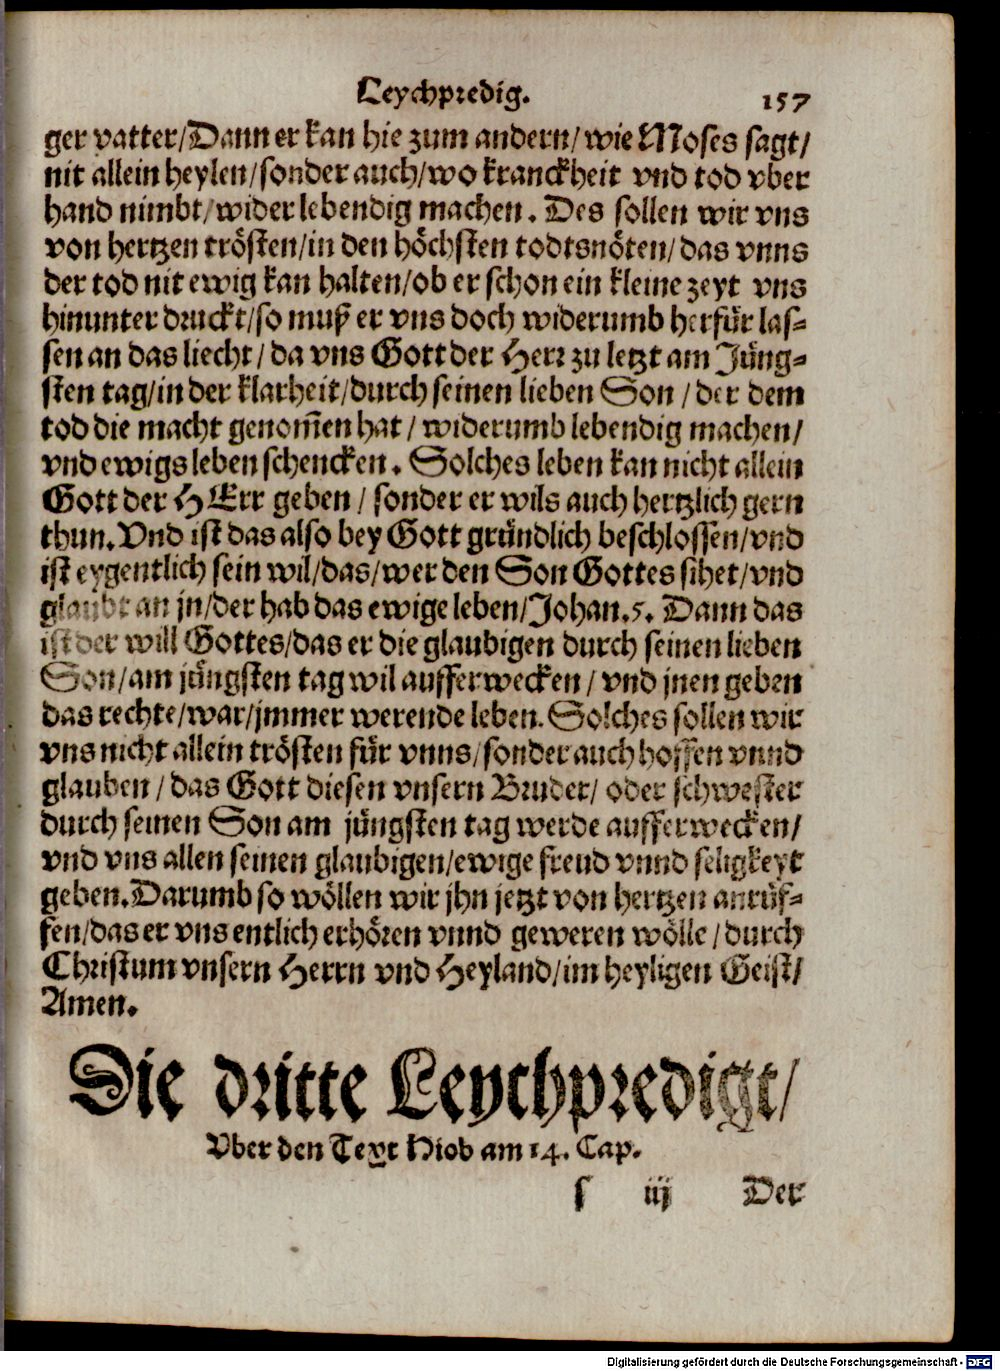 Leychpredig. 157
ger vatter/Dann er kan hie zum andern/wie Moses sagt/
nit allein heylen/sonder auch/wo kranckheit vnd tod vber
hand nimbt/wider lebendig machen. Des sollen wir vns
von hertzen trösten/in den höchsten todtsnöten/das vnns
der tod nit ewig kan halten/ob er schon ein kleine zeyt vns
hinunter druckt/so muß er vns doch widerumb herfür las-
sen an das liecht/da vns Gott der Herr zu letzt am Jüng-
sten tag/in der klarheit/durch seinen lieben Son/der dem
tod die macht genom̃en hat/widerumb lebendig machen/
vnd ewigs leben schencken. Solches leben kan nicht allein
Gott der HErr geben/sonder er wils auch hertzlich gern
thun. Vnd ist das also bey Gott gründlich beschlossen/vnd
ist eygentlich sein wil/das/wer den Son Gottes sihet/vnd
glaubt an jn/der hab das ewige leben/Johan.5. Dann das
ist der will Gottes/das er die glaubigen durch seinen lieben
Son/am jüngsten tag wil aufferwecken/vnd jnen geben
das rechte/war/jmmer werende leben. Solches sollen wir
vns nicht allein trösten für vnns/sonder auch hoffen vnnd
glauben/das Gott diesen vnsern Bruder/oder schwester
durch seinen Son am jüngsten tag werde aufferwecken/
vnd vns allen seinen glaubigen/ewige freud vnnd seligkeyt
geben. Darumb so wöllen wir jhn jetzt von hertzen anrüf-
fen/das er vns entlich erhören vnnd geweren wölle/durch
Christum vnsern Herrn vnd Heyland/im heyligen Geist/
Amen.
Die dritte Leychpredigt/
Vber den Text Hiob am 14. Cap.
s iij Der
Digitalisierung gefördert durch die Deutsche Forschungsgemeinschaft - DFG